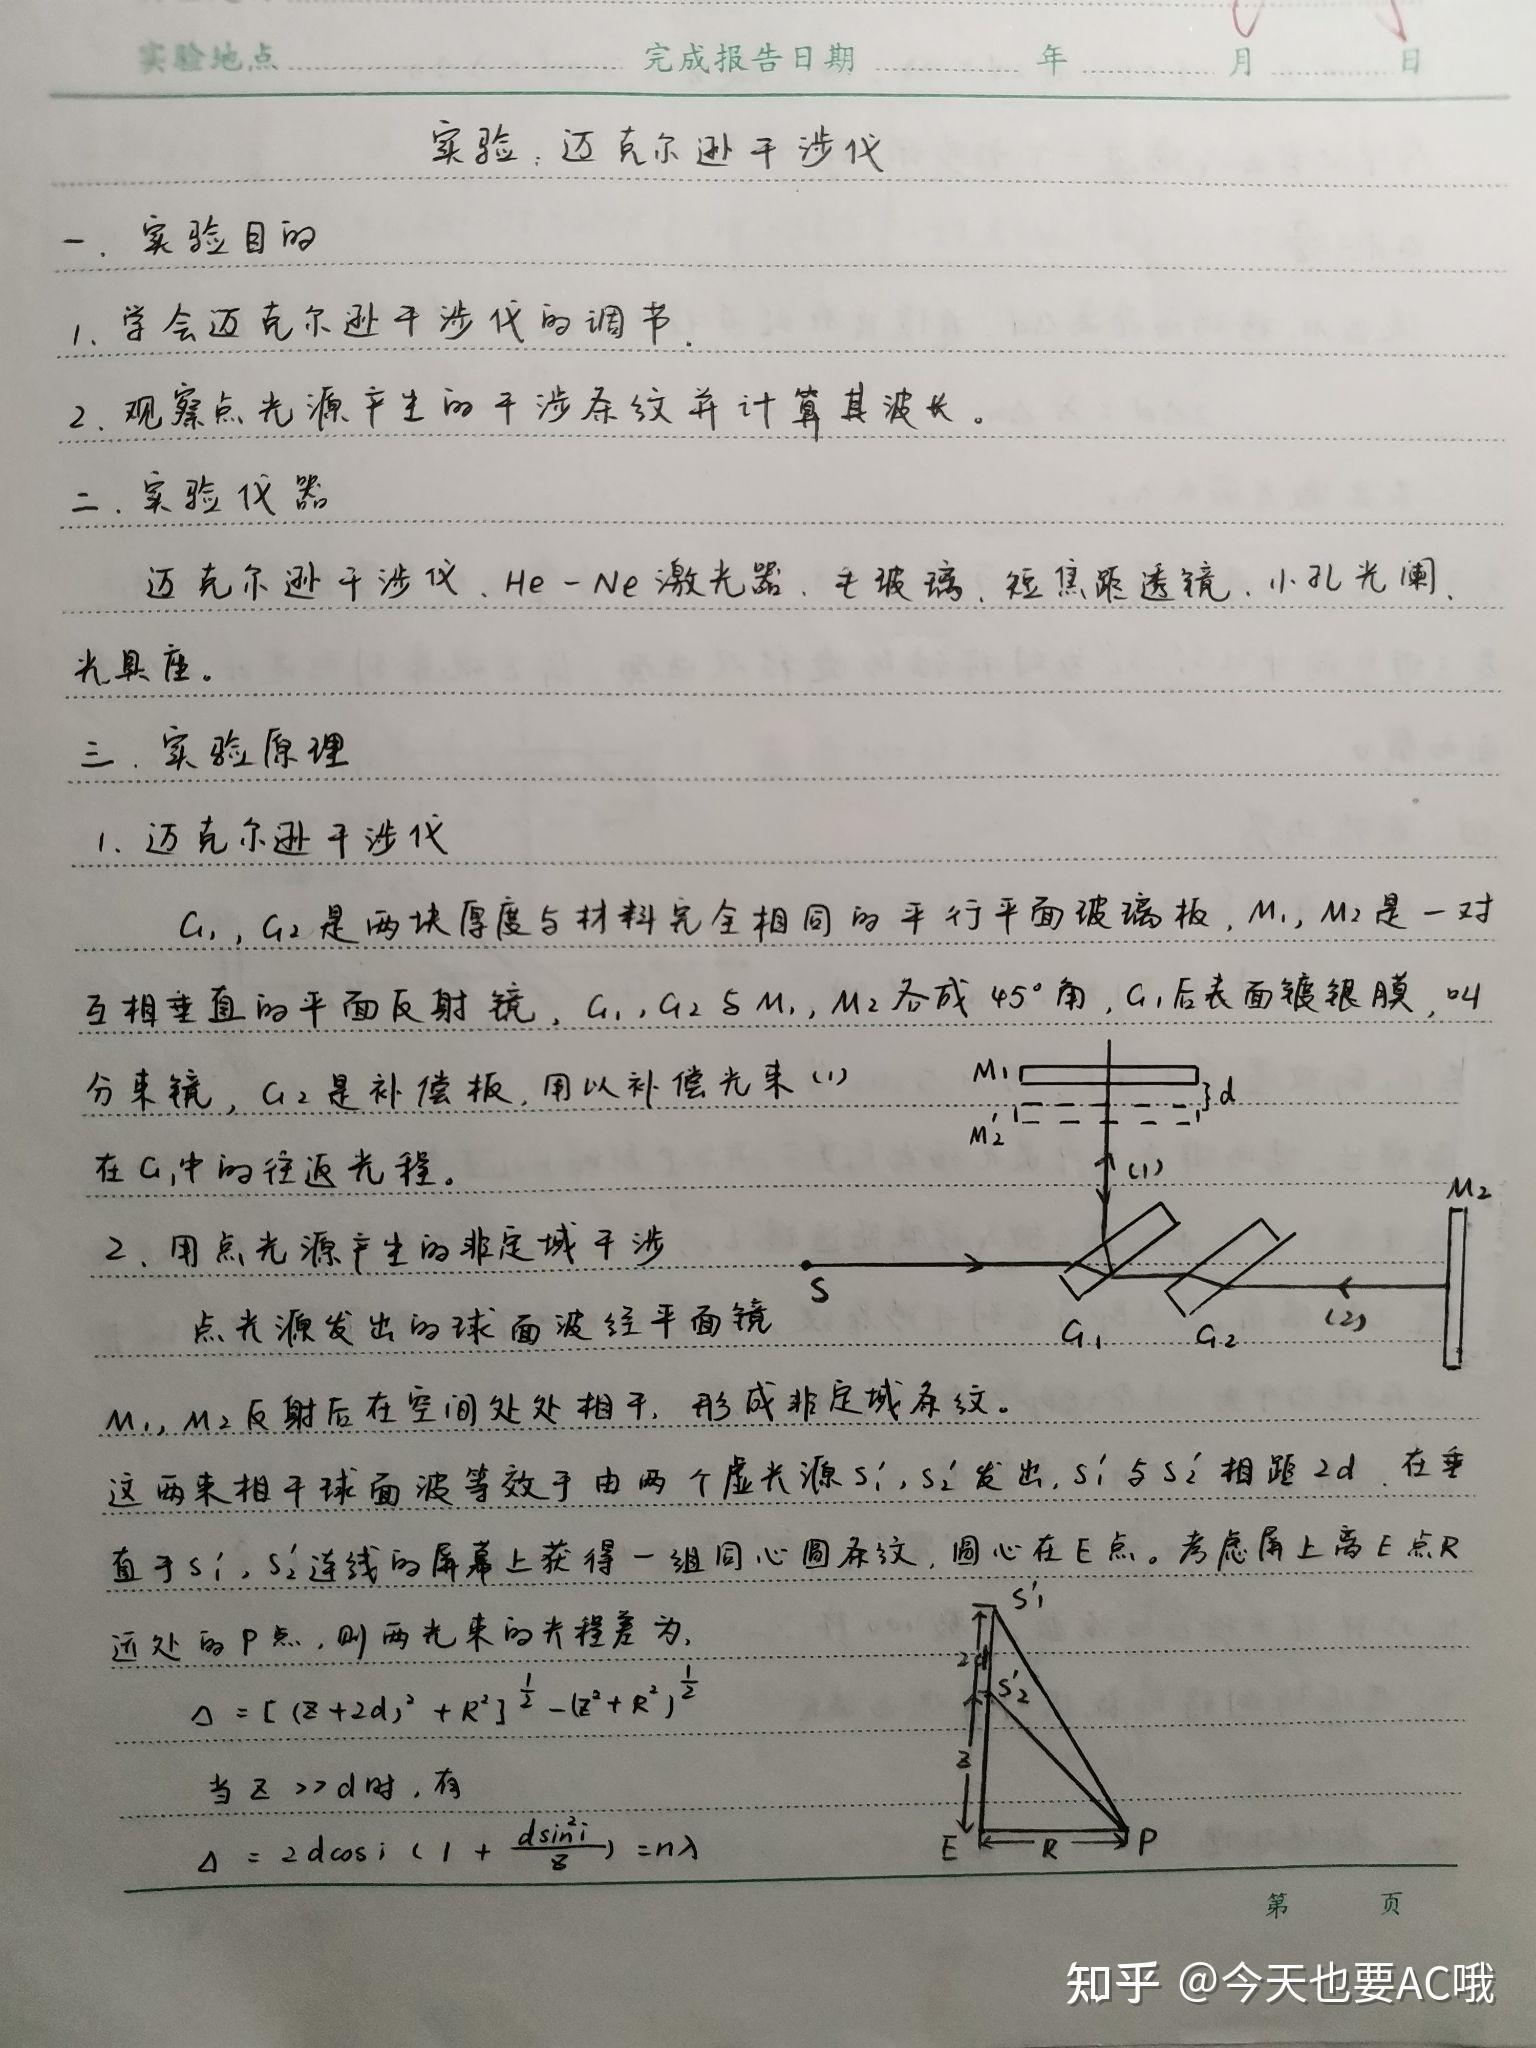 实验地点 完成报告日期 年 月 日
实验：迈克尔逊干涉仪
一、实验目的
1、学会迈克尔逊干涉仪的调节.
2、观察点光源产生的干涉条纹并计算其波长。
二、实验仪器
迈克尔逊干涉仪、He-Ne激光器、毛玻璃、短焦距透镜、小孔光阑、
光具座。
三、实验原理
1、迈克尔逊干涉仪
G₁, G₂是两块厚度与材料完全相同的平行平面玻璃板, M₁, M₂是一对
互相垂直的平面反射镜, G₁, G₂与M₁, M₂各成45°角, G₁后表面镀银膜, 叫
分束镜, G₂是补偿板, 用以补偿光束(1)
在G₁中的往返光程。
M₁
M₂′
d
(1)
M₂
S
G₁
G₂
(2)
2、用点光源产生的非定域干涉
点光源发出的球面波经平面镜
M₁, M₂反射后在空间处处相干, 形成非定域条纹。
这两束相干球面波等效于由两个虚光源S₁′, S₂′发出, S₁′与S₂′相距2d、在垂
直于S₁′, S₂′连线的屏幕上获得一组同心圆条纹, 圆心在E点。考虑屏上离E点R
远处的P点, 则两光束的光程差为,
Δ = [(Z+2d)² + R²]^½ - (Z² + R²)^½
当 Z >> d时, 有
Δ = 2dcosi (1 + dsin²i/Z) = nλ
S₁′
2d
S₂′
Z
E
R
P
第 页
知乎 @今天也要AC哦